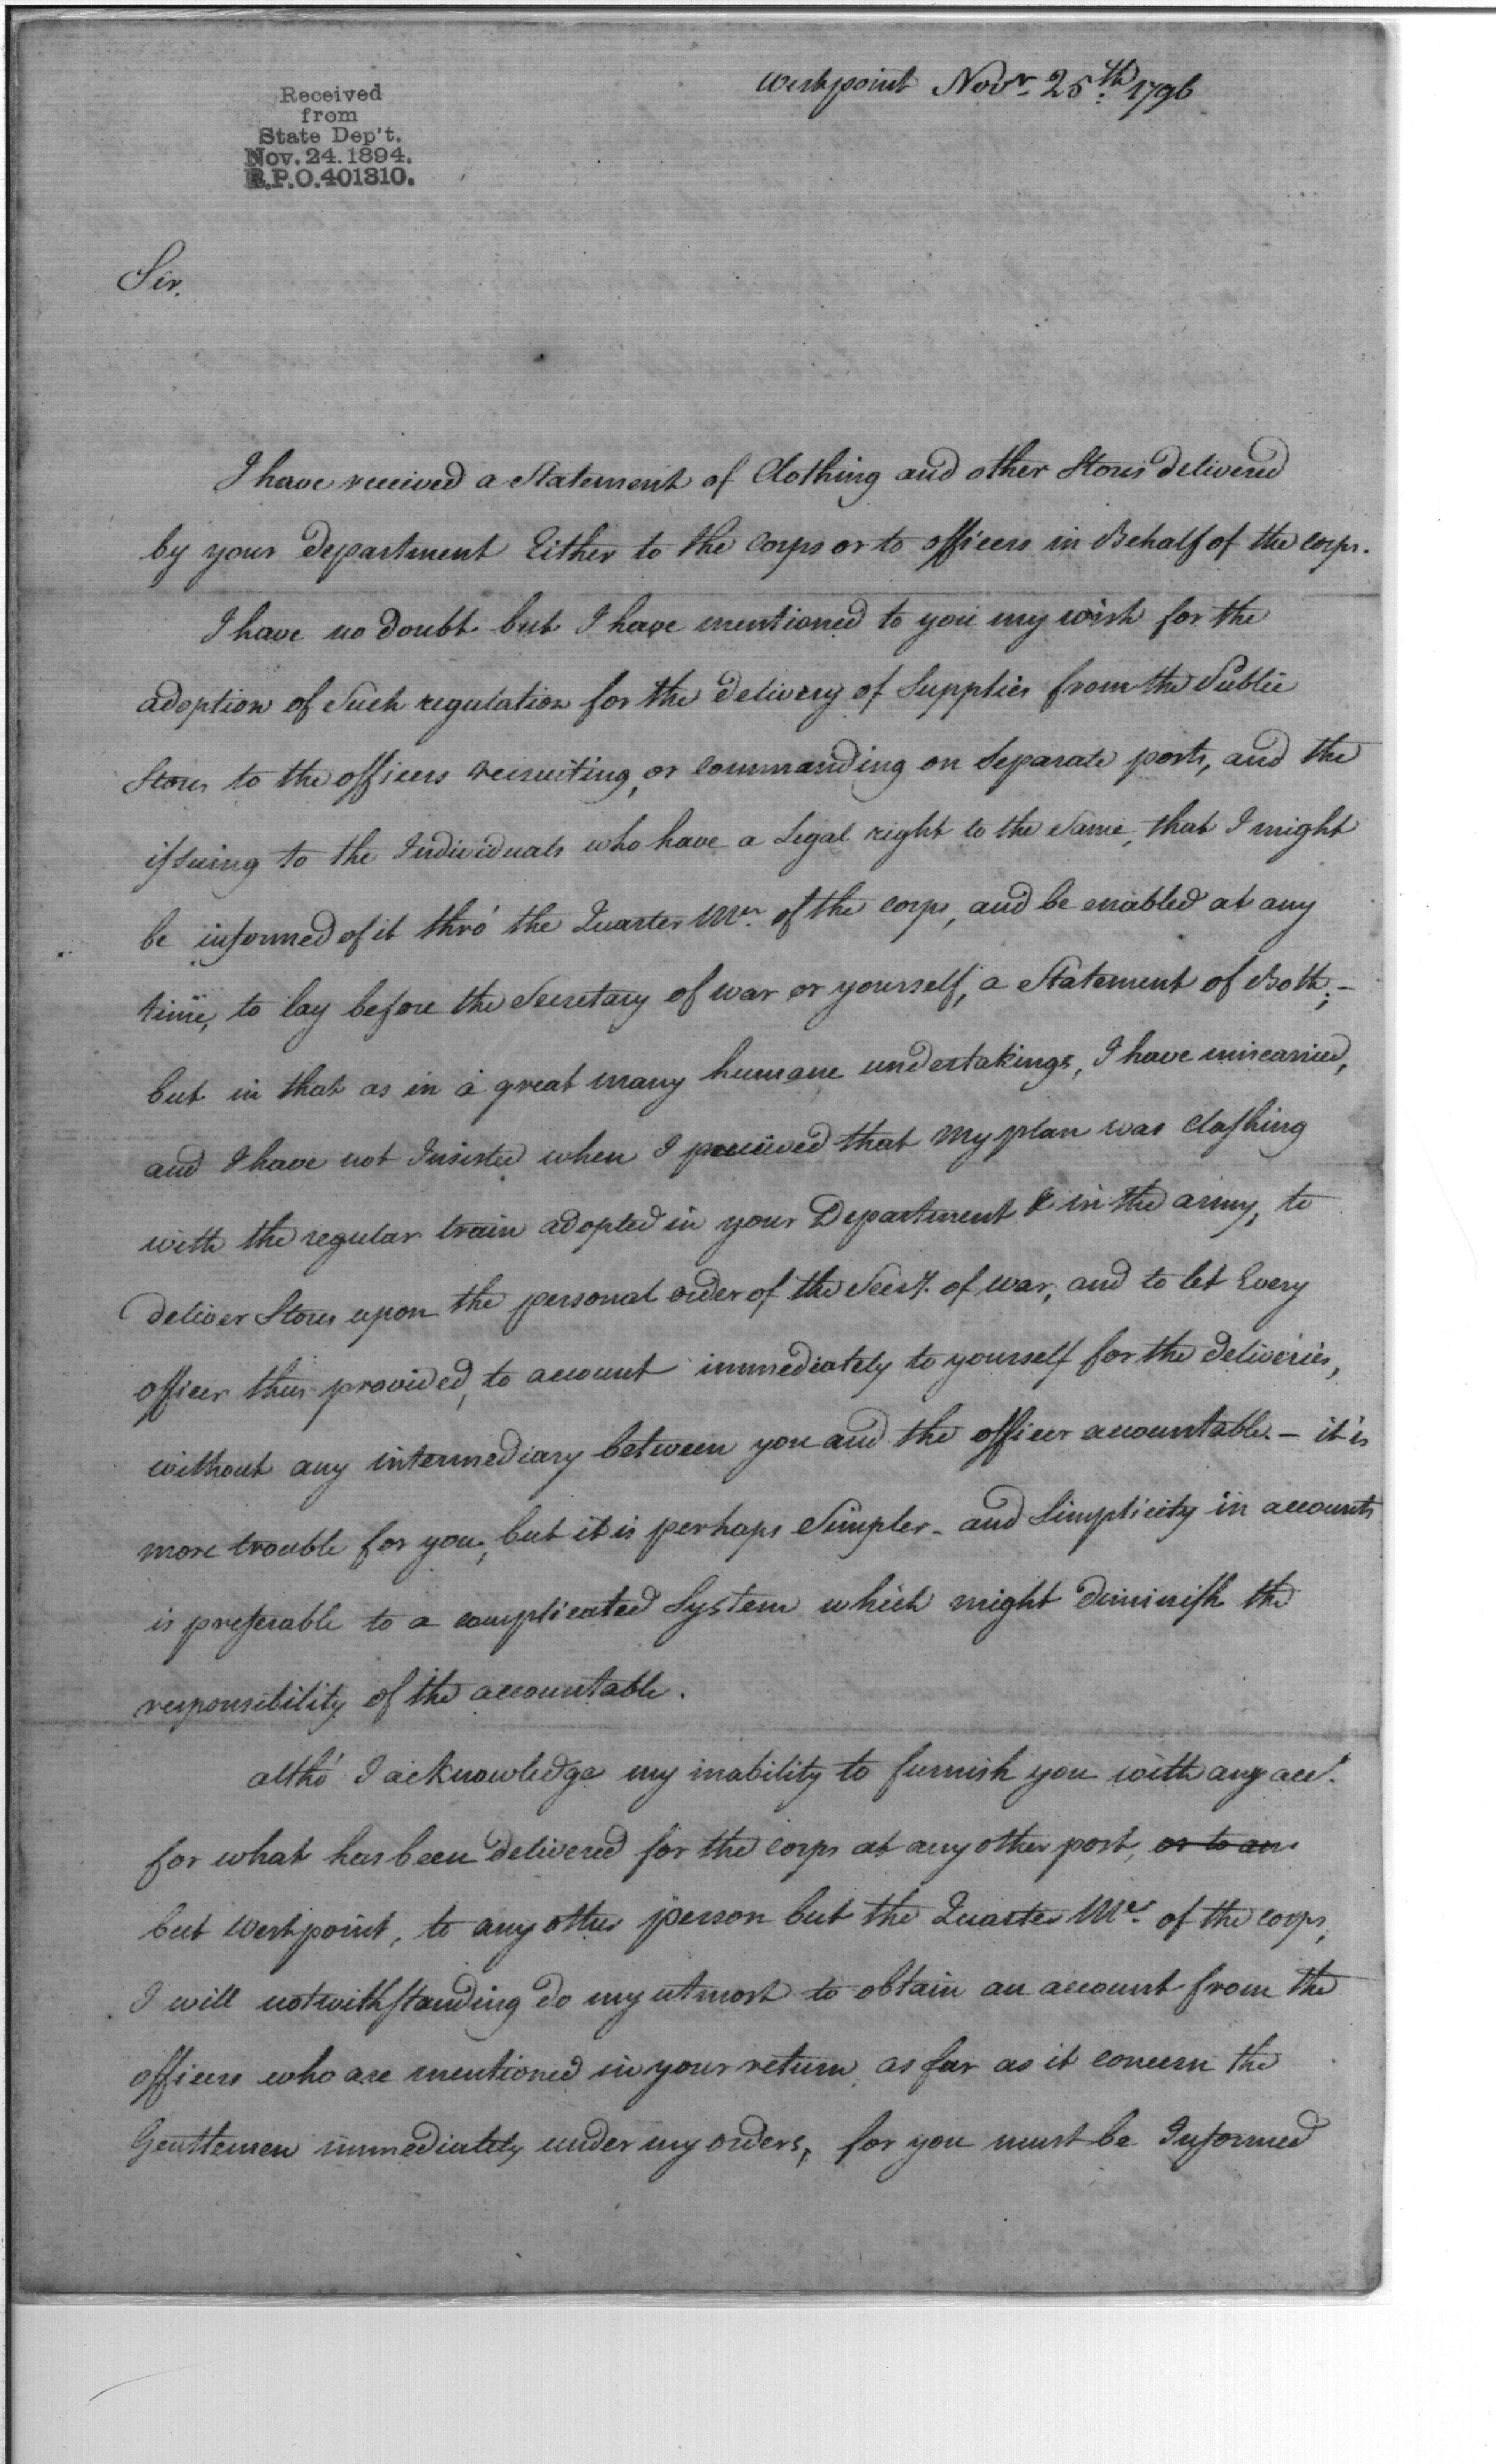 Westpoint Novr. 25th. 1796
Received
from
State Dep't.
Nov. 24. 1894.
R.P.O. 401310.
Sir.
I have received a Statement of Clothing and other Stores delivered
by your department Either to the Corps or to officers in Behalf of the corps.
I have no doubt but I have mentioned to you my wish for the
adoption of Such regulation for the delivery of Supplies from the Public
Stores to the officers recruiting, or commanding on Separate posts, and the
issuing to the Individuals who have a Legal right to the Same, that I might
be informed of it thro' the Quarter Mr. of the corps, and be enabled at any
time, to lay before the Secretary of war or yourself, a Statement of Both; -
but in that as in a great many humane undertakings, I have miscarried,
and I have not Insisted when I perceived that my plan was clashing
with the regular train adopted in your Department & in the army, to
deliver Stores upon the personal order of the Secry. of war, and to let Every
officer thus provided, to account immediately to yourself for the deliveries,
without any intermediary between you and the officer accountable. - it is
more trouble for you, but it is perhaps Simpler - and Simplicity in accounts
is preferable to a complicated System which might diminish the
responsibility of the accountable.
altho' I acknowledge my inability to furnish you with any acct.
for what has been delivered for the corps at any other post, or to an
but Westpoint, to any other person but the Quarter Mr. of the corps,
I will notwithstanding do my utmost to obtain an account from the
officers who are mentioned in your return, as far as it concern the
Gentlemen immediately under my orders, for you must be Informed